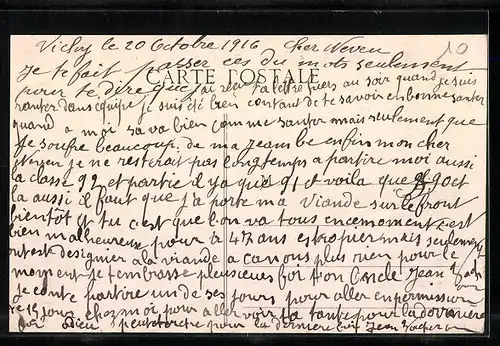 Vichy le 20 Octobre 1916 Cher Neveu
Je te fait passer ces du mots seulement
CARTE POSTALE
pour te dire que j'ai reçu ta lettre hiers au soir quand je suis
rentrer dans équipe je suis été bien contant de te savoir en bonne santer
quand a moi sa va bien comme santer mais seulement que
Je souffre beaucoup de ma jeambe enfin mon cher
je ne resterait pas longtemps a partire moi aussi
la classe 92 et partie il ya que 91 et voila que 9 oct
la aussi il faut que j'a porte ma viande sur le front
bientot et tu c'est que lon va tous en ce moment c'est
bien malheureux pour a 47 ans estropier mais seulement
est designier a la viande a canons plus rien pour le
moment je t'embrasse plusieures foi ton Oncle Jean
je conte partire un de ses jours pour aller en permission
de 15 jours chez moi pour aller voir ta tante pour la dernniere
foi adieu peut etre pour la derniere foi Jean